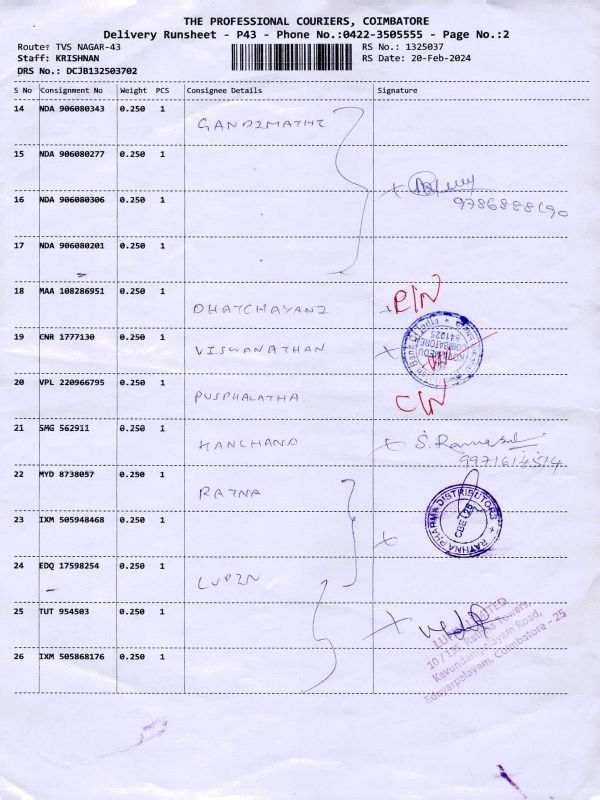 THE PROFESSIONAL COURIERS, COIMBATORE
Delivery Runsheet - P43 - Phone No.:0422-3505555 - Page No.:2
Route: TVS NAGAR-43
RS No.: 1325037
Staff: KRISHNAN
RS Date: 20-Feb-2024
DRS No.: DCJB132503702
S No Consignment No Weight PCS Consignee Details Signature
14 NDA 906080343 0.250 1 GANDIMATHI
15 NDA 906080277 0.250 1
16 NDA 906080306 0.250 1
9786888690
17 NDA 906080201 0.250 1
18 MAA 108286951 0.250 1 DHATCHAYANI
19 CNR 1777130 0.250 1 VISWANATHAN
COIMBATORE
641025
20 VPL 220966795 0.250 1 PUSPHALATHA
21 SMG 562911 0.250 1
9971614514
22 MYD 8738057 0.250 1 RATNA
23 IXM 505948468 0.250 1
RATHNA PHARMA DISTRIBUTORS
CBE
24 EDQ 17598254 0.250 1 LUPIN
25 TUT 954503 0.250 1
LIMITED
Kavundampalayam Road,
Edayarpalayam, Coimbatore - 25
26 IXM 505868176 0.250 1